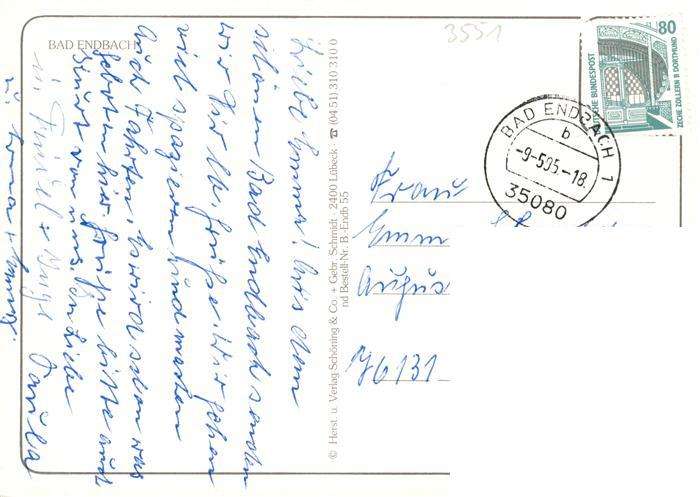 BAD ENDBACH
Liebe Emma! Aus dem
schönen Bad Endbach senden
wir Dir lb. Grüße. Wir gehen
viel spazieren und machen
auch Fahrten. Es wird schon was
geboten hier. Grüße bitte auch
von uns. In Liebe
Paula
u. Erna +
© Herst. u. Verlag Schöning & Co. + Gebr. Schmidt · 2400 Lübeck · ☎ (04 51) 310 310 0
nd Bestell-Nr. B.-Endb 55
3551
80
DEUTSCHE BUNDESPOST
ZECHE ZOLLERN II DORTMUND
BAD ENDBACH 1
b
-9-5.95-18
35080
Frau
Emm
Augus
36131